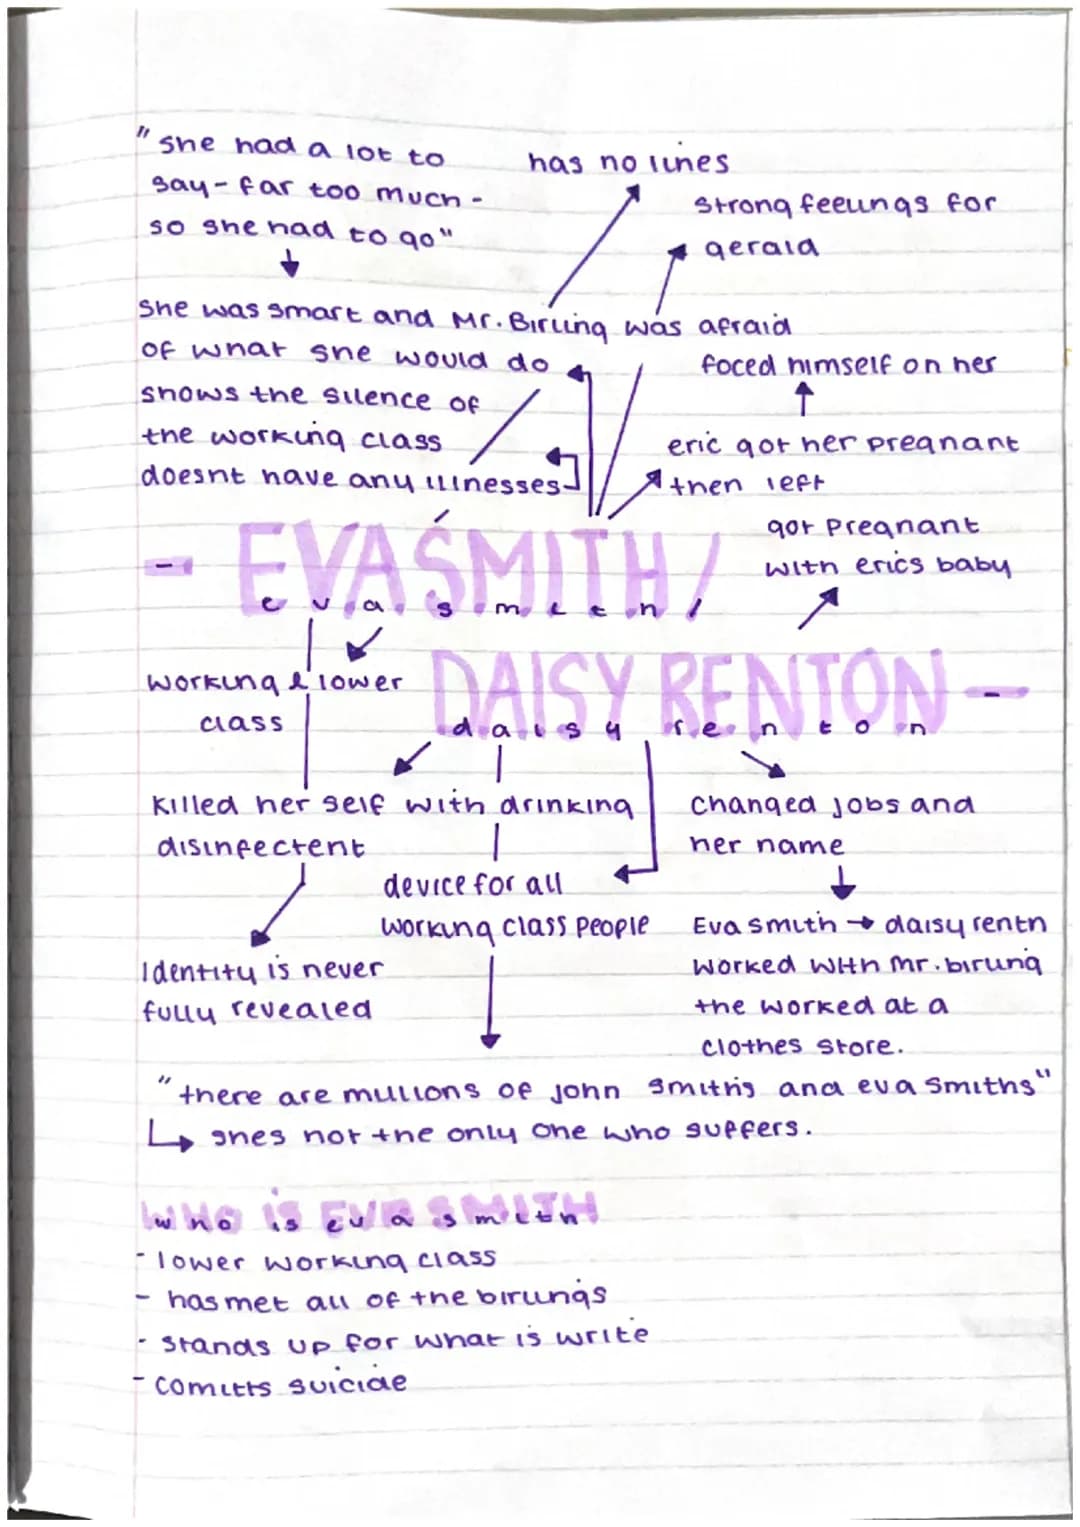 "she had a lot to
say - far too much -
so she had to go"
has no lines
strong feelings for
gerald
She was smart and Mr. Birling was afraid
of what she would do
shows the silence of
the working class
doesnt have any illnesses
foced himself on her
eric got her pregnant
then left
got pregnant
with erics baby
- EVA SMITH /
eva smith /
DAISY RENTON -
daisy renton
working & lower
class
killed her self with drinking
disinfectent
changed jobs and
her name
device for all
working class people
Eva smith → daisy rentn
worked with mr. birling
the worked at a
clothes store.
Identity is never
fully revealed
"there are millions of john smiths and eva smiths"
↳ shes not the only one who suffers.
WHO IS EVA SMITH
who is eva smith
- lower working class
- has met all of the birlings
- stands up for what is write
- comitts suicide